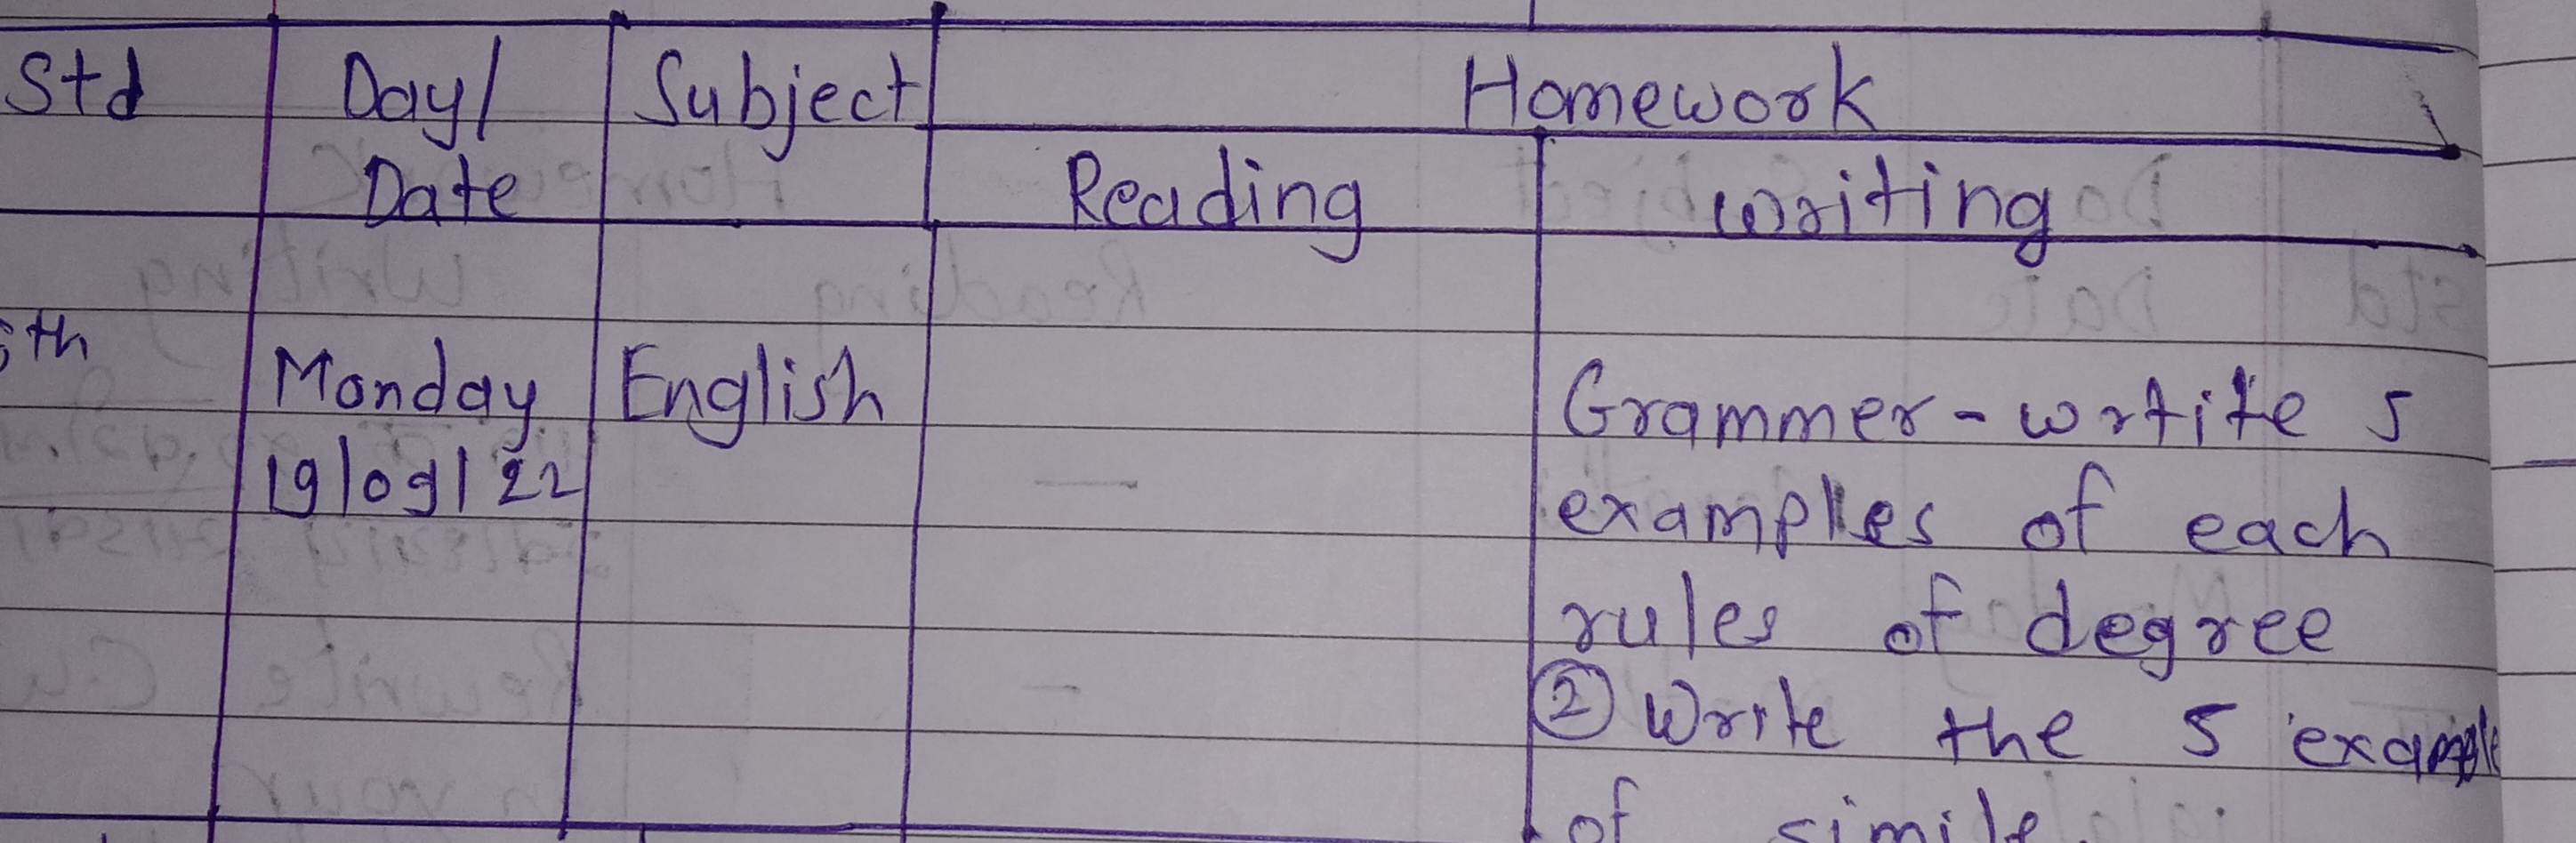 Std Day/ Subject Homework
Date Reading writing
Monday English Grammer - wrtite 5
19/09/22 — examples of each
rules of degree
② Write the 5 example
of simile.